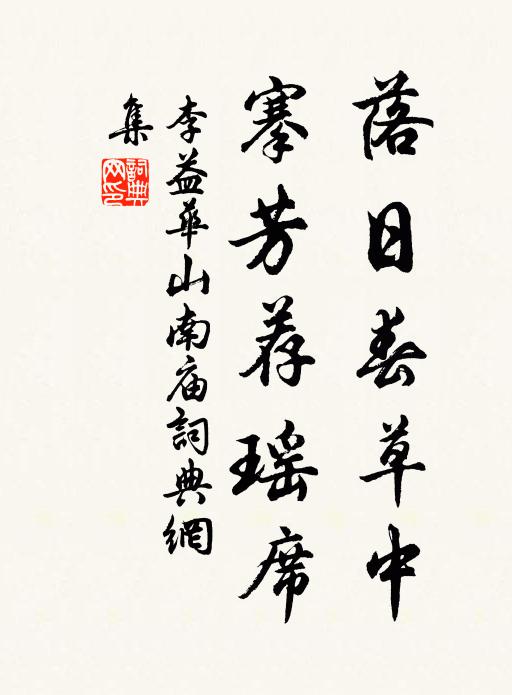 落日春草中
搴芳荐瑶席
李益華山南庙詞典網
集
詞典网印